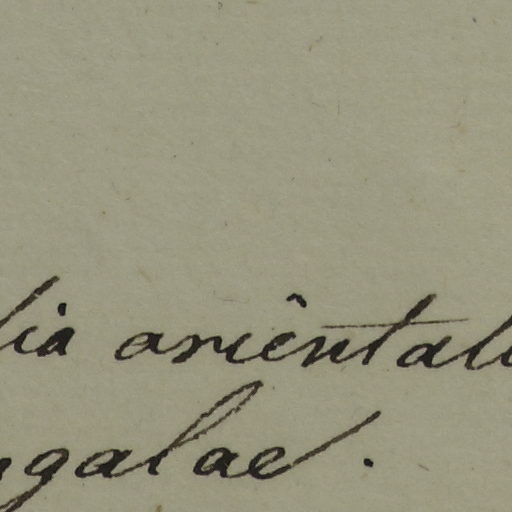 dia oriêntali
ngalae.